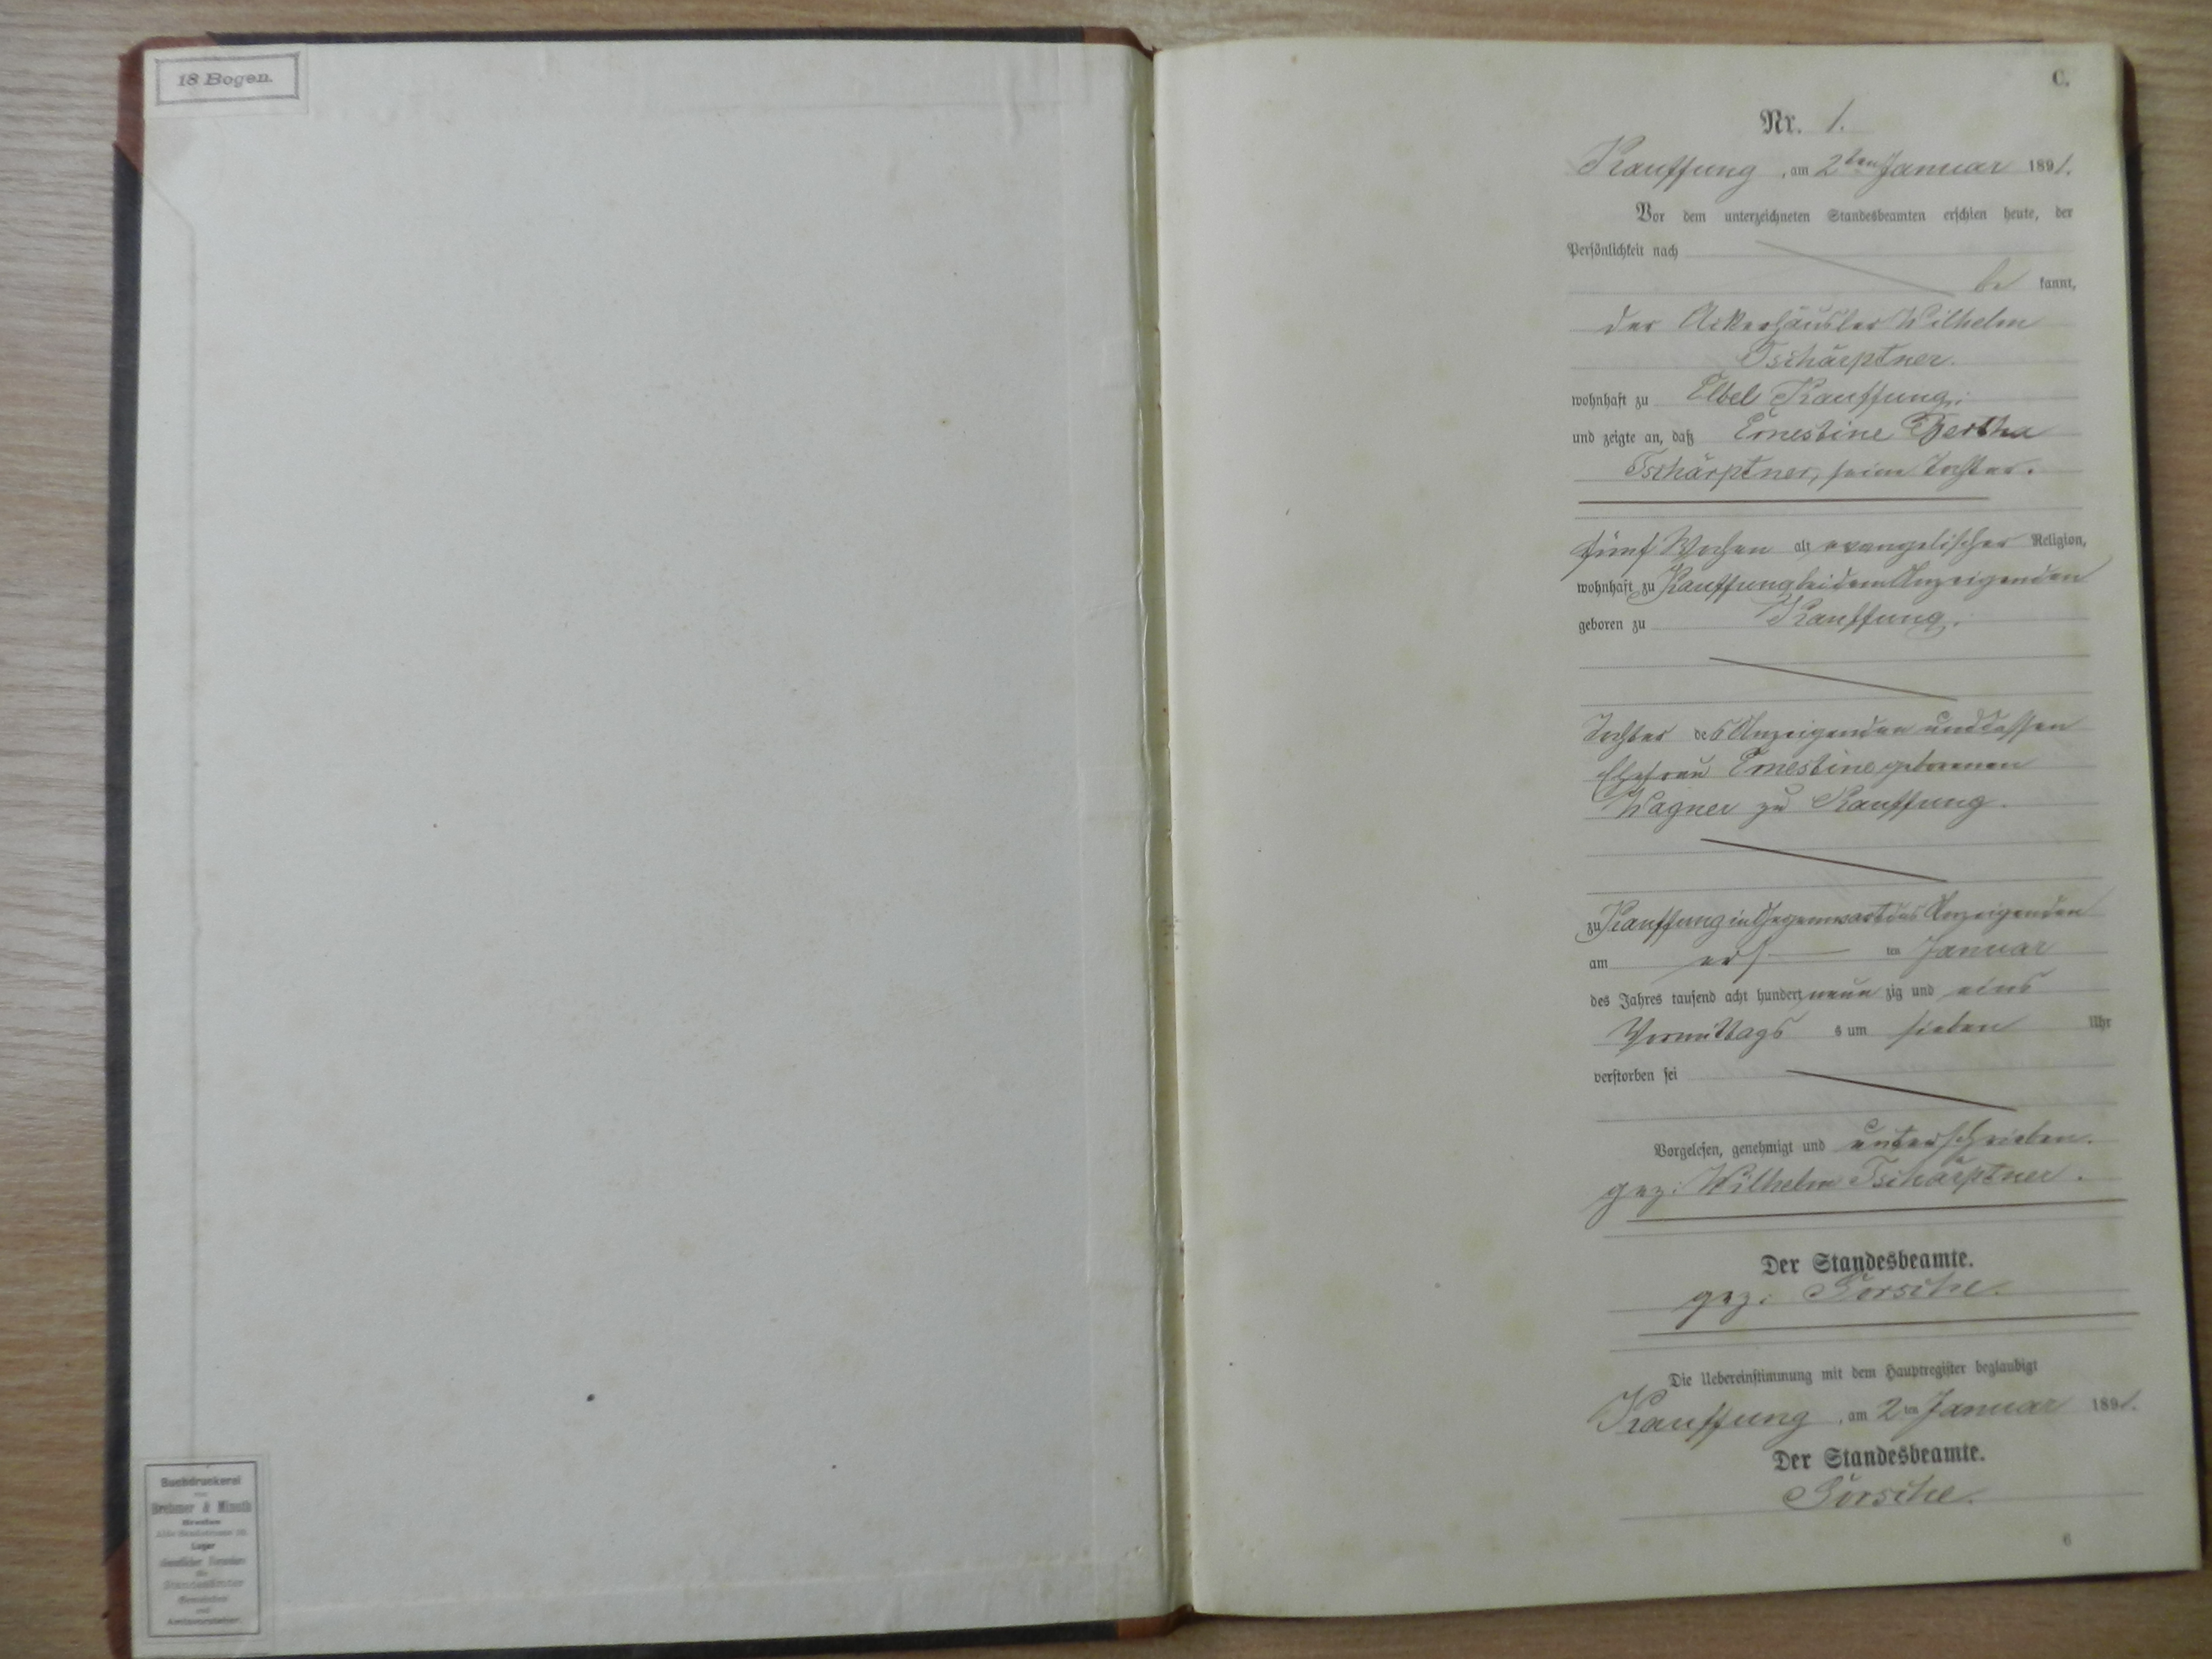 18 Bogen.
Buchdruckerei
Lager
Standesämter
Gemeinden
und
Amtsvorsteher.
C.
Nr. 1.
Kauffung, am 2ten Januar 1891.
Vor dem unterzeichneten Standesbeamten erschien heute, der
Persönlichkeit nach
be kannt,
der Ackerhäusler Wilhelm
Tschärptner.
wohnhaft zu Elbel Kauffung,
und zeigte an, daß Ernestine Bertha
Tschärptner, seine Tochter.
fünf Wochen alt, evangelischer Religion,
wohnhaft zu Kauffung bei dem Anzeigenden
geboren zu Kauffung.
Tochter des Anzeigenden und dessen
Ehefrau Ernestine geborenen
Wagner zu Kauffung.
zu Kauffung in Gegenwart des Anzeigenden
am ers ten Januar
des Jahres tausend acht hundert neun zig und eins
Vormittags s um sieben Uhr
verstorben sei
Vorgelesen, genehmigt und unterschrieben.
gez: Wilhelm Tschärptner.
Der Standesbeamte.
gez:
Die Uebereinstimmung mit dem Hauptregister beglaubigt
Kauffung, am 2ten Januar 1891.
Der Standesbeamte.
6